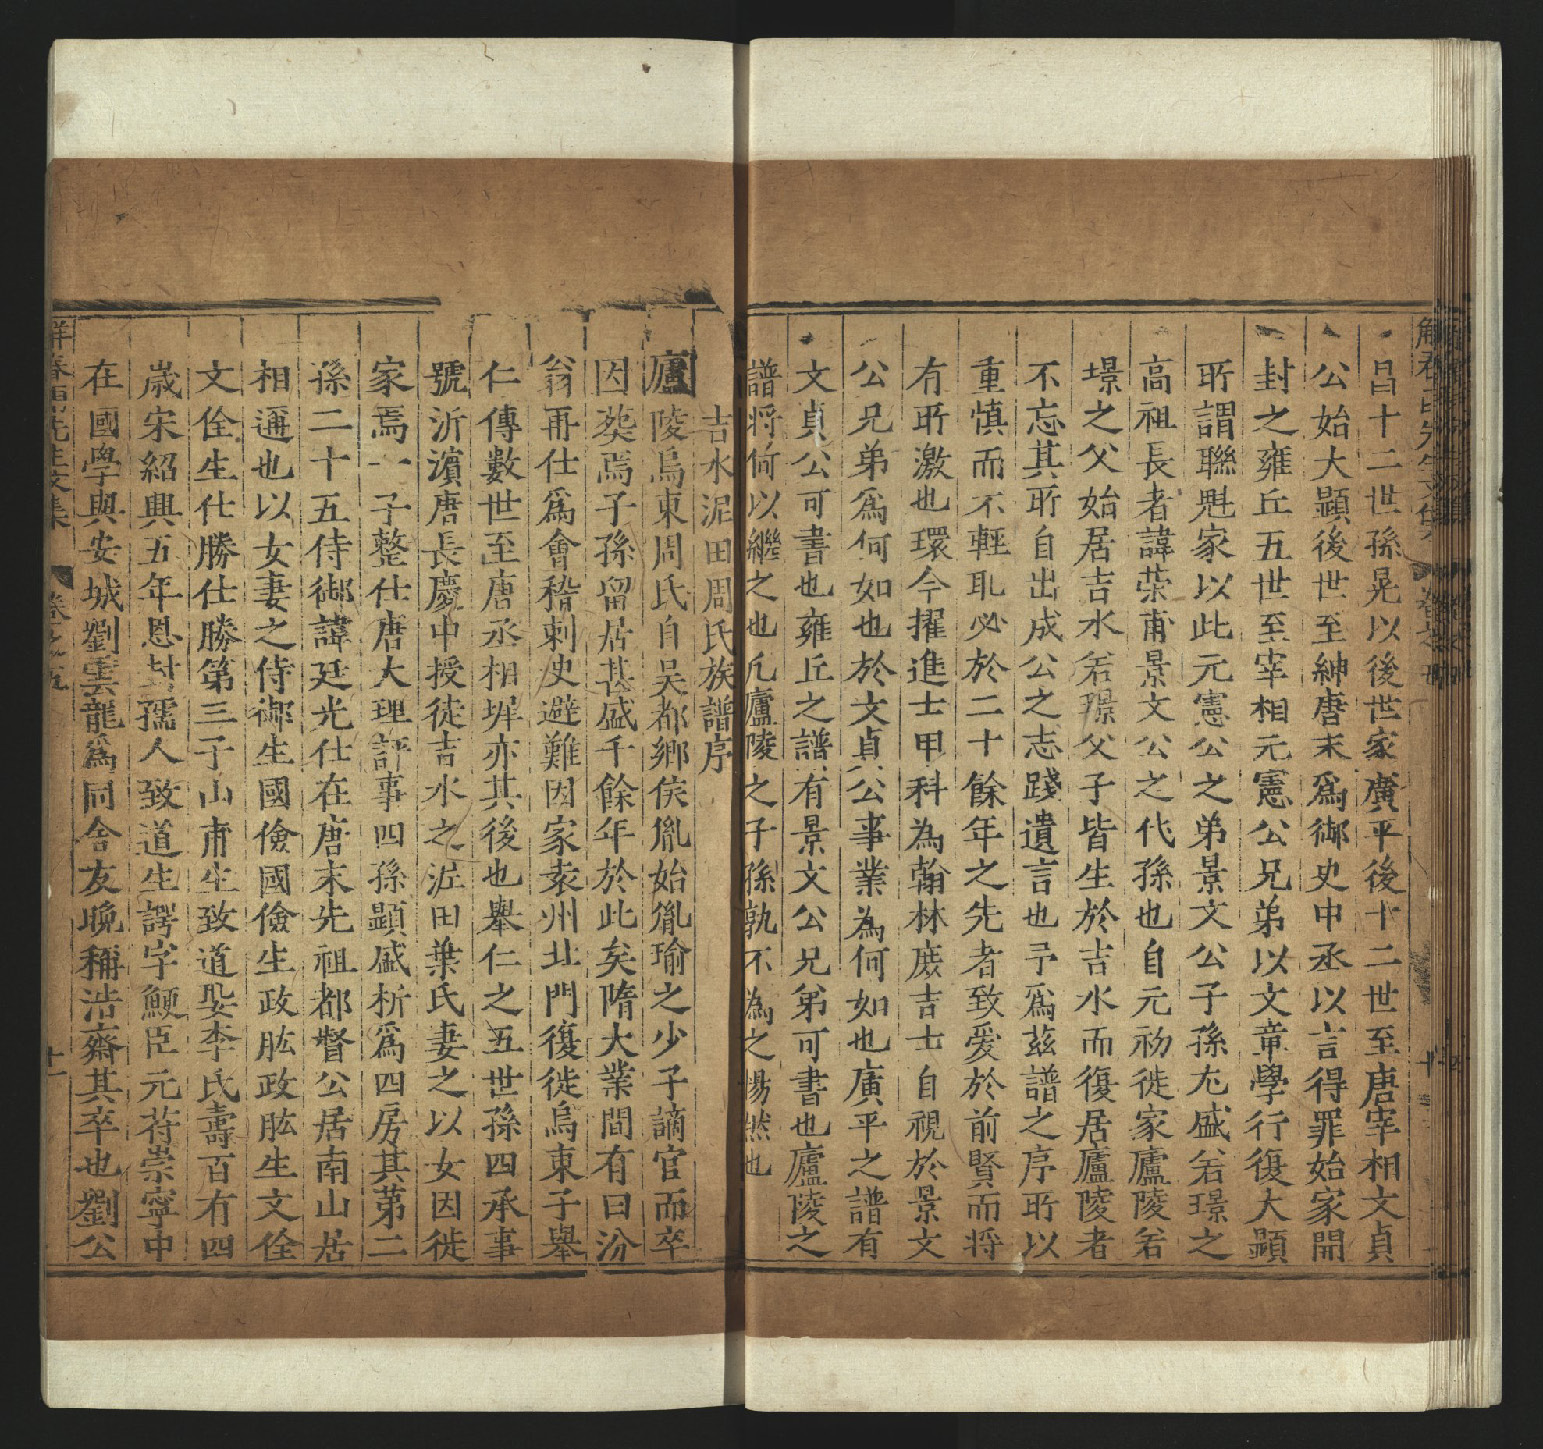 昌十二世孫晃以後世家廣平後十二世至唐宰相文貞
公始大顯後世至紳唐末爲御史中丞以言得罪始家開
封之雍丘五世至宰相元憲公兄弟以文章學行復大顯
所謂聯魁家以此元憲公之弟景文公子孫尤盛若璟之
高祖長者諱榮甫景文公之代孫也自元初徙家廬陵若
璟之父始居吉水若璟父子皆生於吉水而復居廬陵者
不忘其所自出成公之志踐遺言也予爲茲譜之序所以
重慎而不輕耴必於二十餘年之先者致愛於前賢而將
有所激也環今擢進士甲科為翰林庶吉士自視於景文
公兄弟爲何如也於文貞公事業為何如也廣平之譜有
文貞公可書也雍丘之譜有景文公兄弟可書也廬陵之
譜將何以繼之也凡廬陵之子孫孰不為之惕然也
吉水泥田周氏族譜序
廬陵烏東周氏自吳都鄉侯胤始胤瑜之少子謫官而卒
因葬焉子孫留居甚盛千餘年於此矣隋大業間有曰汾
翁再仕爲會稽刺史避難因家袁州北門復徙烏東子舉
仁傳數世至唐丞相墀亦其後也舉仁之五世孫四承事
號沂濵唐長慶中授徒吉水之泥田葉氏妻之以女因徙
家焉一子整仕唐大理評事四孫顯盛析爲四房其第二
孫二十五侍御諱廷光仕在唐末先祖都督公居南山居
相邇也以女妻之侍御生國儉國儉生政肱政肱生文佺
文佺生仕勝仕勝第三子山甫生致道娶李氏壽百有四
歲宋紹興五年恩封孺人致道生諤字鯁臣元符崇寧中
在國學與安城劉雲龍爲同舍友晚稱浩齋其卒也劉公
解春雨先生文集 卷之五 十一